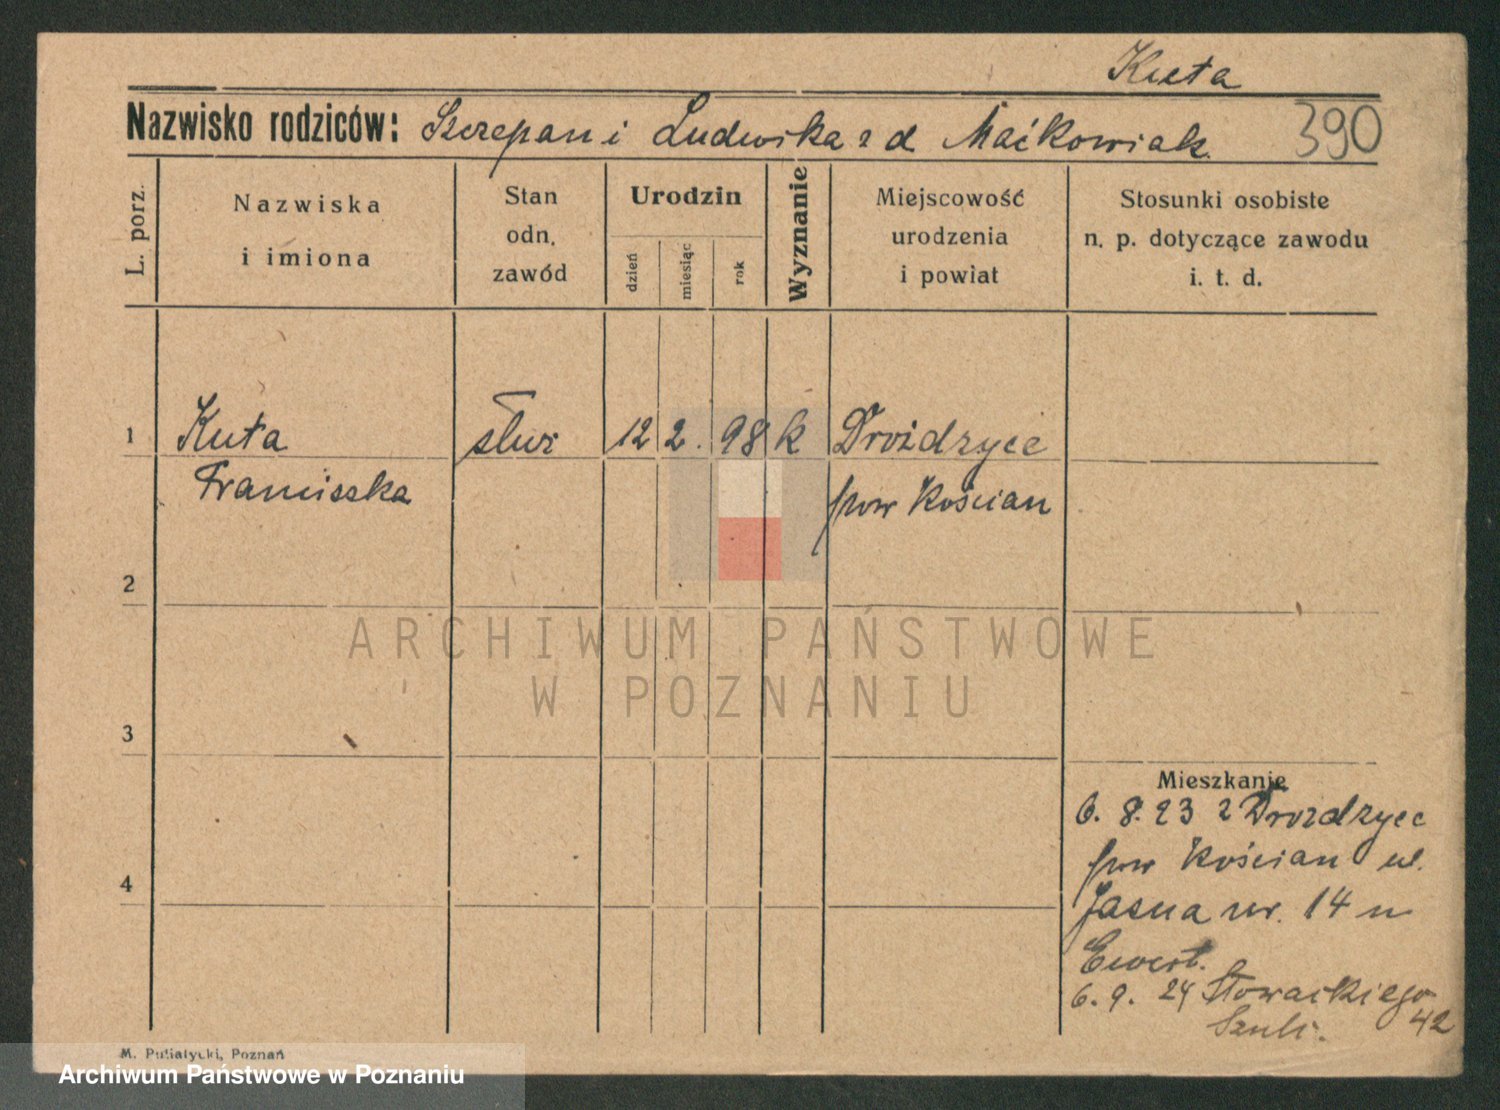 Kuta
Nazwisko rodziców: Szczepan i Ludwika z d Maćkowiak
390
L. porz.
Nazwiska
i imiona
Stan
odn.
zawód
Urodzin
dzień
miesiąc
rok
Wyznanie
Miejscowość
urodzenia
i powiat
Stosunki osobiste
n. p. dotyczące zawodu
i. t. d.
1 Kuta służ 12 2. 98 k Drożdzyce
Franciszka pow Kościan
2
ARCHIWUM PAŃSTWOWE
W POZNANIU
3
Mieszkanie
6. 8. 23 z Drożdzyce
pow Kościan ul.
4
Jasna nr. 14 u
6. 9. 24 Słowackiego
42
M. Putiatycki, Poznań
Archiwum Państwowe w Poznaniu